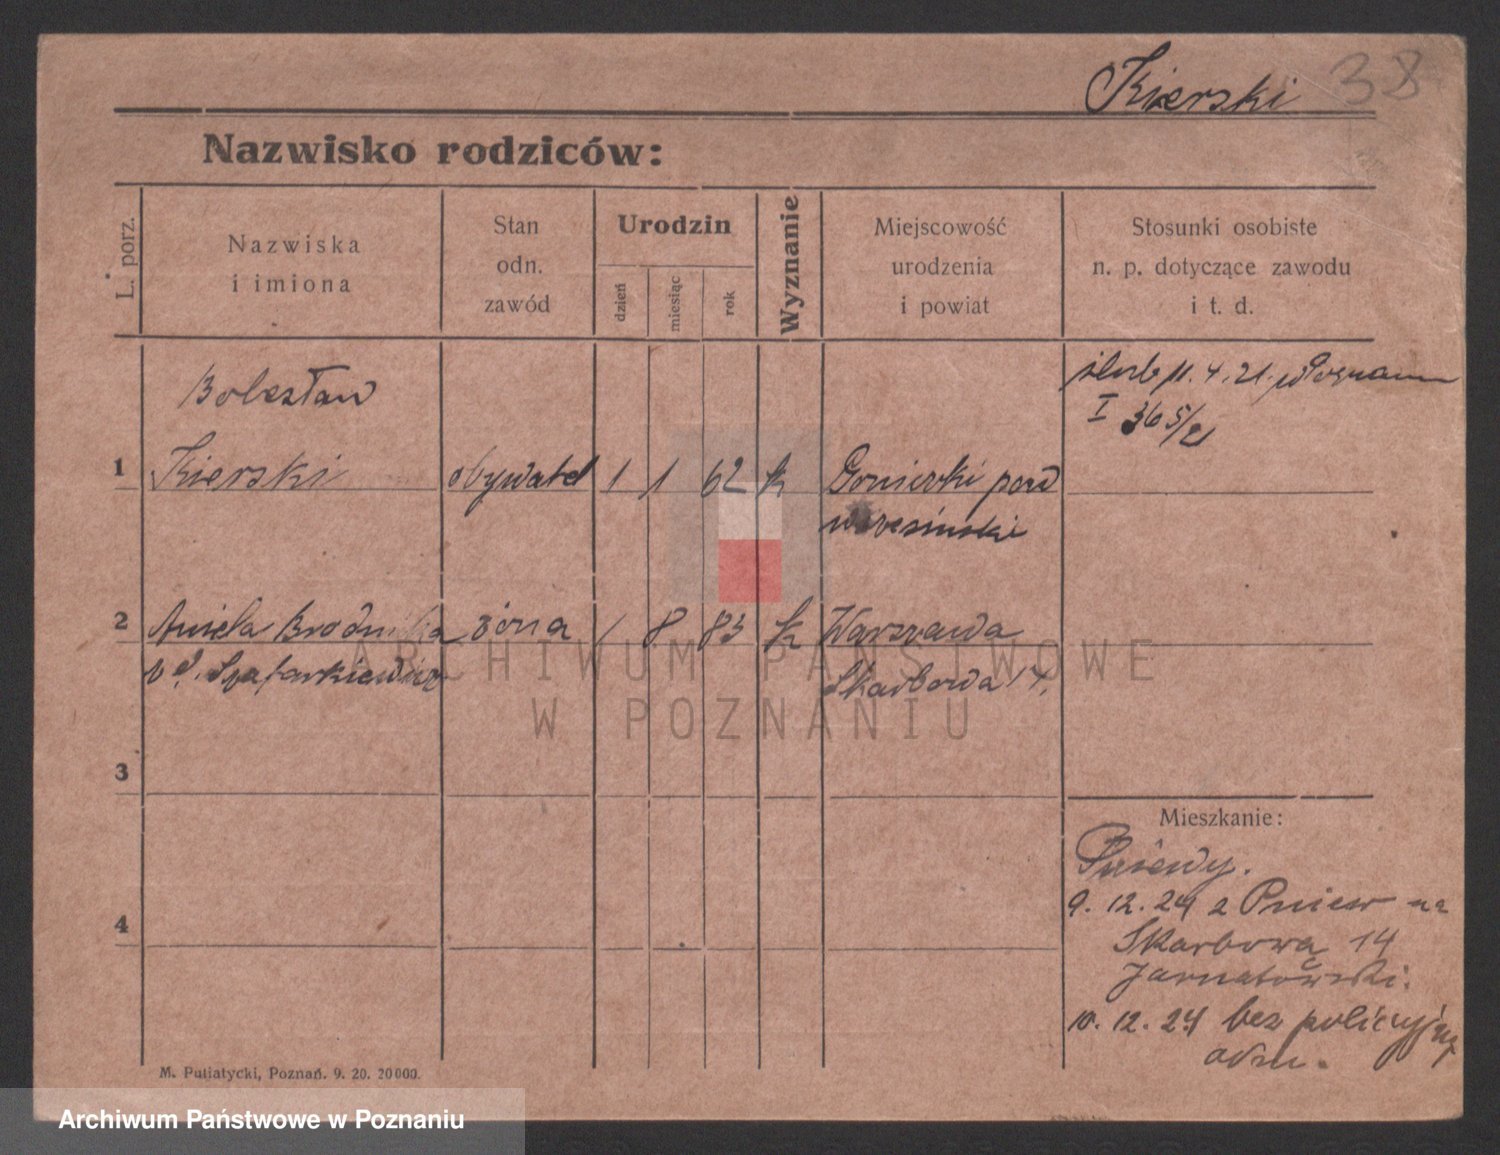 Kierski 38
Nazwisko rodziców:
L. porz.
Nazwiska
i imiona
Stan
odn.
zawód
Urodzin
dzień
miesiąc
rok
Wyznanie
Miejscowość
urodzenia
i powiat
Stosunki osobiste
n. p. dotyczące zawodu
i t. d.
Bolesław
ślub 11.4.21. w Poznaniu
I 365/21
1 Kierski obywatel 1 1 62 k pow
wrzesiński
2 Aniela żona 1 8 83 k Warszawa
Skarbowa 14.
3
Mieszkanie:
Pniewy.
9.12.24 z Pniew na
Skarbowa 14
4
10.12.24 bez policyjnej
M. Putiatycki, Poznań. 9. 20. 20000.
ARCHIWUM PAŃSTWOWE
W POZNANIU
Archiwum Państwowe w Poznaniu